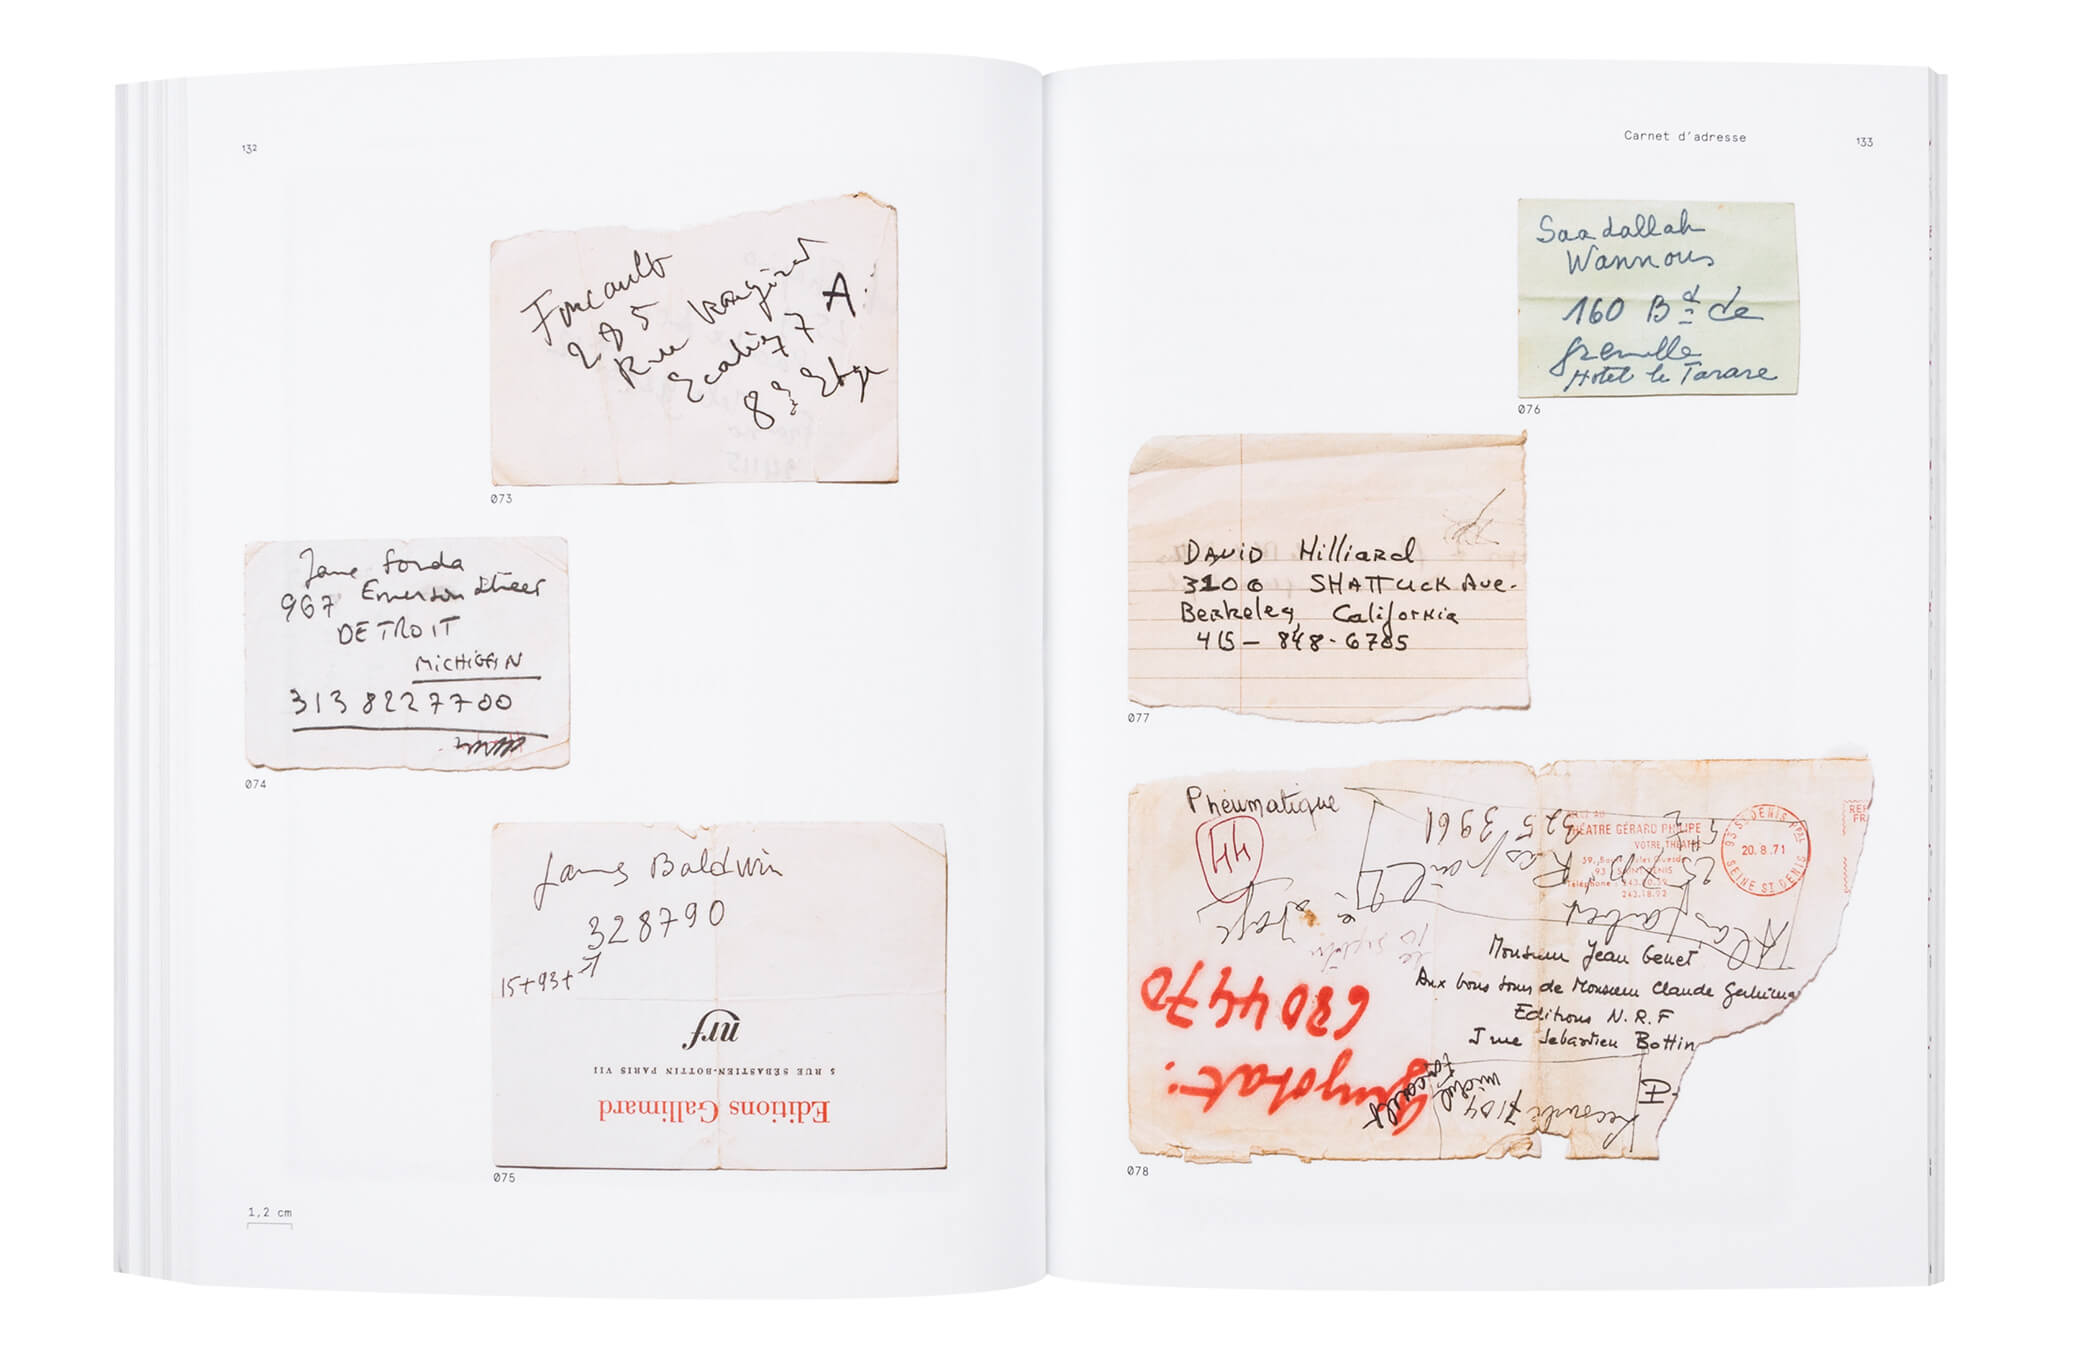 132
Foucault
285
Rue Vaugirard
Escalier 7 A.
8è Etage
073
Jane Fonda
967 Emerson Street
DETROIT
MICHIGAN
313 8227700
074
James Baldwin
328790
15+93+
nrf
5 RUE SÉBASTIEN-BOTTIN PARIS VII
Editions Gallimard
075
1,2 cm
Carnet d'adresse
133
Saadallah
Wannous
160 Bd de
Grenelle
Hotel le Tarare
076
DAVID Hilliard
3106 SHATTUCK Ave.
Berkeley, California
415 – 848 - 6785
077
Pneumatique
44
325 3961
Raspail
THÉATRE GÉRARD PHILIPE
VOTRE THÉATRE
93 ST DENIS PPAL
20.8.71
SEINE ST DENIS
243.18.92
Monsieur Jean Genet
Aux bons soins de Monsieur Claude
Editions N.R.F
5 rue Sebastien Bottin
Guyotat :
6804470
michel
Foucault
7104
078